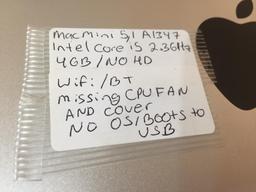 Mac Mini 5,1 A1347
Intel Core i5 2.3GHz
4GB / NO HD
Wifi / BT
missing CPU FAN
AND COVER
NO OS / Boots to
USB